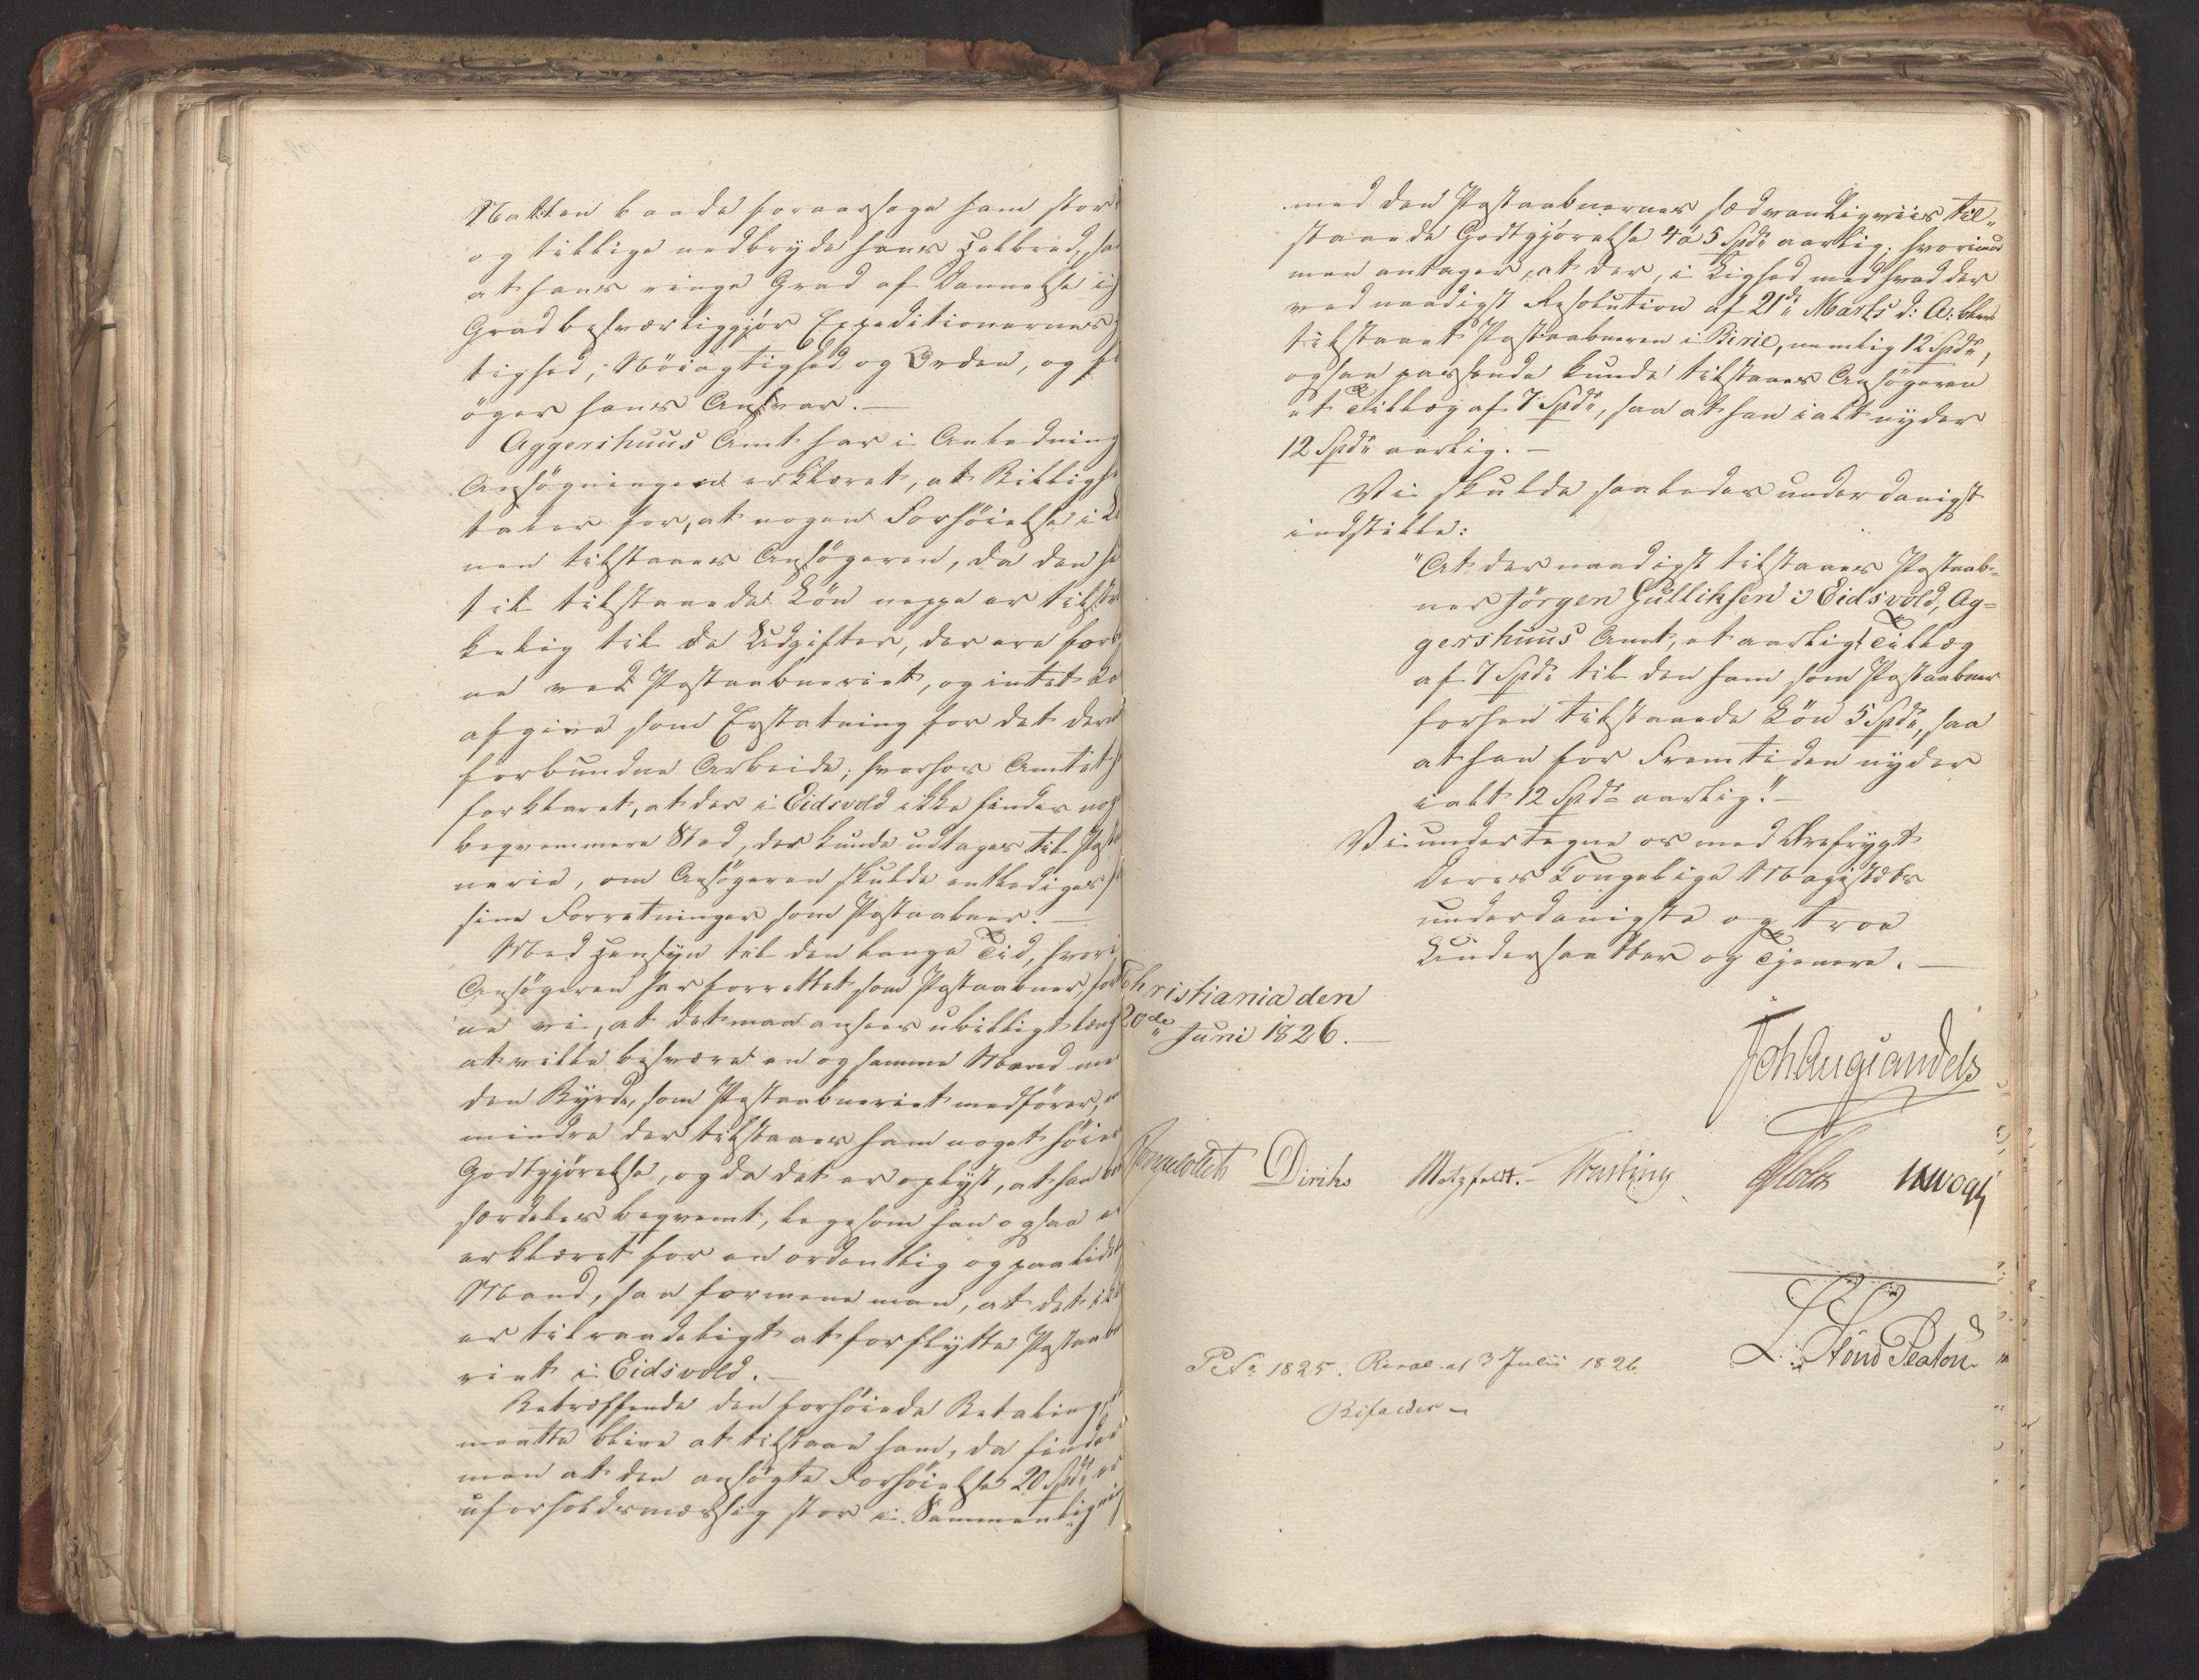 Natten baade foraarsage ham stor
og tillige nedbryde hans Helbred, saa
at hans ringe Grad af Dannelse i
Grad besværliggjør Expeditionernes
tighed, Nöiagtighed og Orden, og
öger hans Ansvar. —
Aggershuus Amt har i Anledning
Ansögningen erklæret, at Billigh
taler for, at nogen Forhöielse i Lö
nen tilstaaes Ansögeren, da den h
til tilstaaede Lön neppe er tilstr
kelig til de Udgifter, der ere forb
ne med Postaabneriet, og intet
afgive som Erstatning for det der
forbundne Arbeide; hvorhos Amtet h
forklaret, at der i Eidsvold ikke findes nog
beqvemmere Sted, der kunde udtages til Posta
nerie, om Ansögeren skulde entlediges f
sine Forretninger som Postaabner. —
Med Hensyn til den lange Tid, hvori
Ansögeren har forrettet som Postaabner, for
ne vi, at det maa ansees ubilligt læng
at ville besvære en og samme Mand me
den Byrde, som Postaabneriet medförer,
mindre der tilstaaes ham noget höie
Godtgjörelse, og da det er oplyst, at han bo
særdeles beqvemt, ligesom han ogsaa er
erklæret for en ordentlig og paalid
Mand, saa formene man, at det ik
er tilraadeligt at forflytte Postaabne
riet i Eidsvold. —
Betræffende den forhöiede Betaling,
maatte blive at tilstaae ham, da finder
man at den ansögte Forhöielse 20 Spd er
uforholdsmæssig stor i Sammenlign
med den Postaabnernes sædvanligviis til-
staaede Godtgjörelse 4 à 5 Spd aarlig; hvorimod
man antager, at der, i Lighed med hvad der
ved naadigst Resolution af 21de Marts d: A: blev
tilstaaet Postaabneren i Birie, nemlig 12 Spd,
ogsaa passende kunde tilstaaes Ansögeren
et Tillæg af 7 Spd, saa at han ialt nyder
12 Spd aarlig. —
Vi skulde saaledes underdanigst
indstille:
"At der naadigst tilstaaes Postaab-
ner Jörgen Gulliksen i Eidsvold, Ag=
gershuus Amt, et aarligt Tillæg
af 7 Spd til den ham som Postaabner
forhen tilstaaede Lön 5 Spd, saa
at han for Fremtiden nyder
ialt 12 Spd aarlig." —
Vi undertegne os med Ærefrygt
Deres Kongelige Majestæts
underdanigste og troe
Undersaatter og Tjenere. —
Christiania den
20de Juni 1826. —
Joh Aug Sandels
Diriks Motzfeldt. — Treschow
P. No 1825. Resol. af 3 Julii 1826.
Bifaldes —